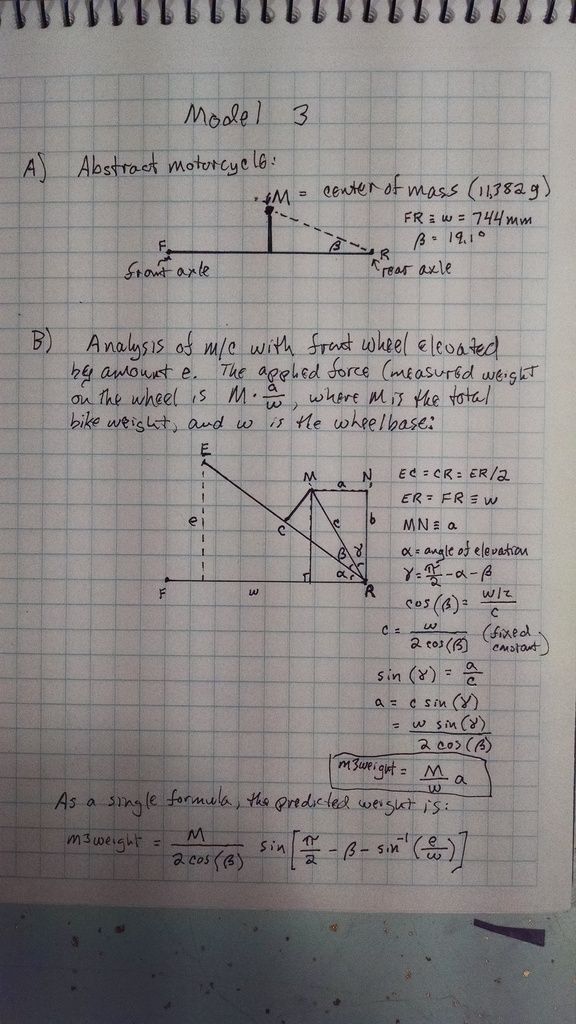 Model 3
A) Abstract motorcycle:
M = center of mass (11,382 g)
FR ≡ w = 744 mm
β = 19.1°
F β R
front axle rear axle
B) Analysis of m/c with front wheel elevated
by amount e. The applied force (measured weight
on the wheel is M · a/w, where M is the total
bike weight, and w is the wheelbase:
E
M a N
e c b
C β γ
α
F w R
EC = CR = ER/2
ER = FR ≡ w
MN ≡ a
α = angle of elevation
γ = π/2 - α - β
cos(β) = (w/2)/c
c = w/(2 cos(β)) (fixed
constant)
sin(γ) = a/c
a = c sin(γ)
= w sin(γ)/(2 cos(β))
m3weight = M/w a
As a single formula, the predicted weight is:
m3weight = M/(2 cos(β)) sin[π/2 - β - sin⁻¹(e/w)]